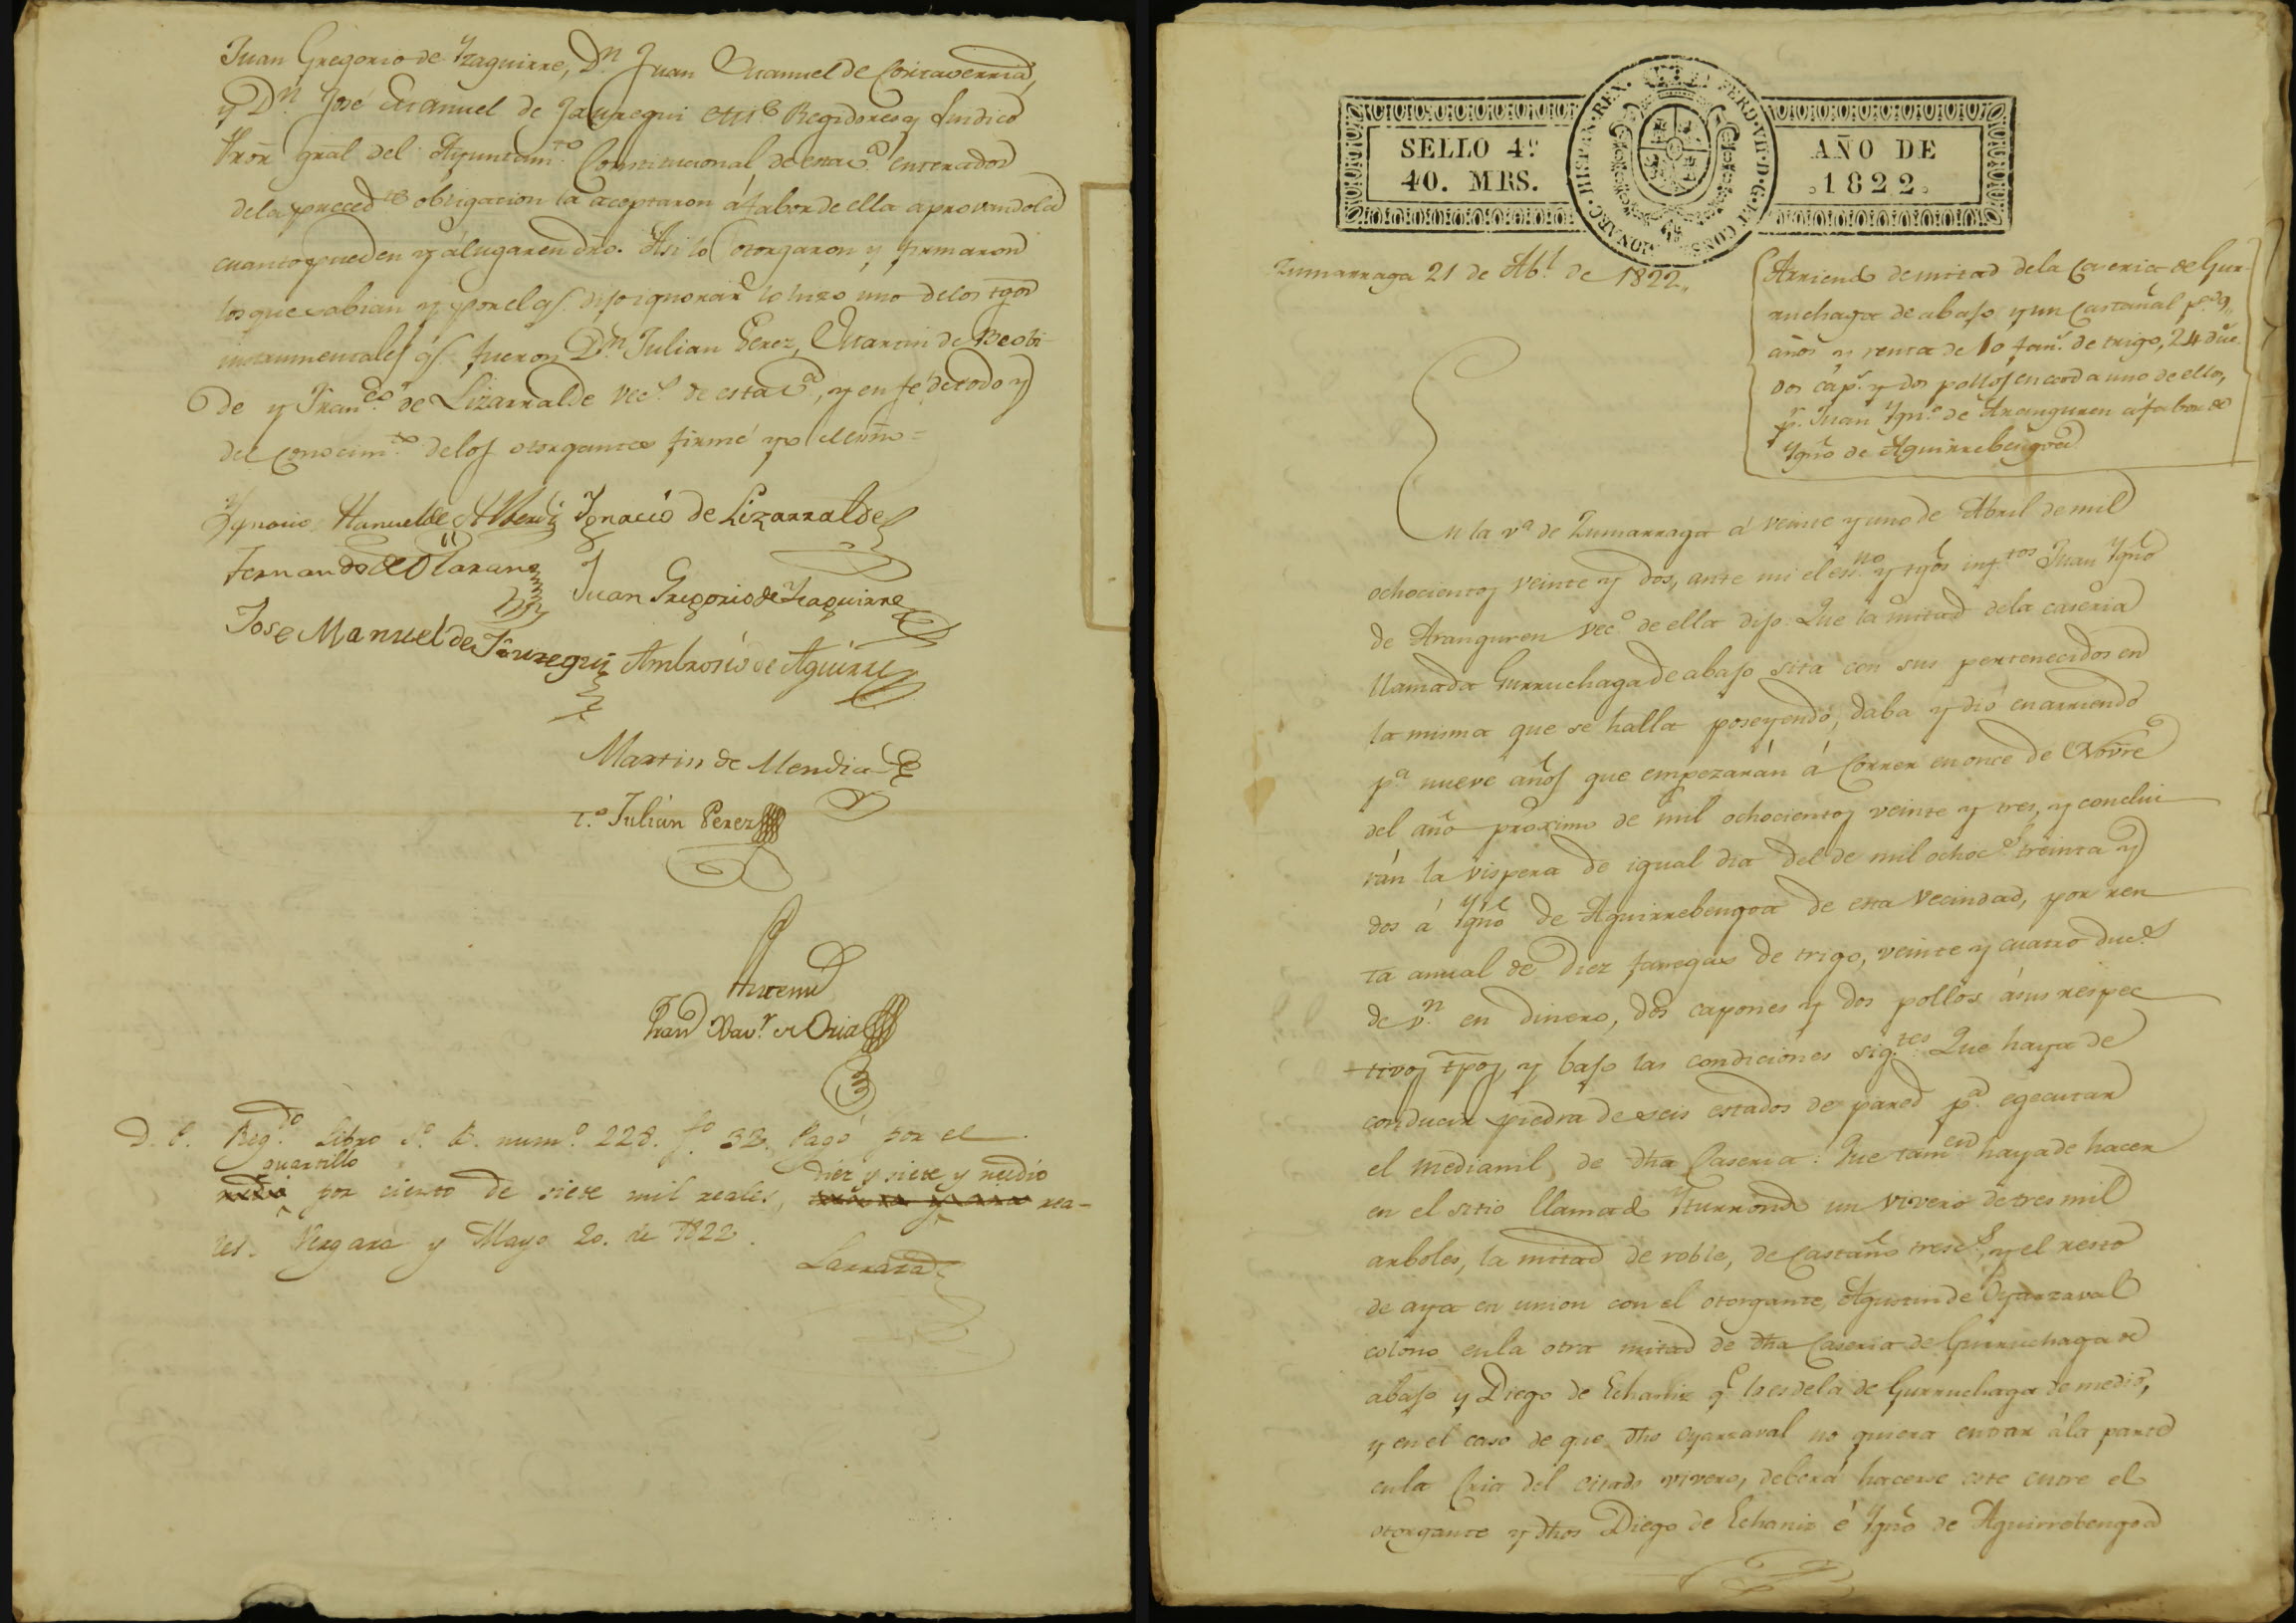 Juan Gregorio de Yzaguirre, Dn. Juan Manuel de
y Dn. José Manuel de Jauregui Regidores y Sindico
Pror gral del Ayuntamto. Constitucional de esta va. enterados
de la precedte obligacion la aceptaron á fabor de ella aprovandola
cuanto pueden y á lugar en dro. Asi lo otorgaron y firmaron
los que sabian y por el qe. dijo ignorar lo hizo uno de los tgos
instrumentales qe. fueron Dn. Julian Perez, Martin de Beobi-
de y Franco. de Lizarralde vecs. de esta va, y en fé de todo y
del conocimto. de los otorgantes firmé yo el esno =
Ygnacio Manuel de Alberdi Ignacio de Lizarralde
Fernando de Olaran
Juan Gregorio de Yzaguirre
Jose Manuel de Jauregui Ambrosio de Aguirre
Martin de Mendia
To. Julian Perez
Antemi
Xavr. de Oria
Regdo. Libro numo. 228. fo. 33. Pagó por el
quartillo diez y siete y medio
medio por ciento de siete mil reales, rea-
les. Vergara y Mayo 20. de 1822.
Larraza
SELLO 4º
40. MRS.
HISPAN. REX. FERD. VII. D. G. ET CONST. MONARC.
AÑO DE
1822.
Zumarraga 21 de Abl. de 1822.
Arriendo de mitad de la Caseria de Gur-
ruchaga de abajo y un Castañal pr. 9
años y renta de 10 fans. de trigo, 24 duc.
dos caps. y dos pollos en cada uno de ellos,
pr. Juan Ygno. de Aranguren á fabor de
Ygno de Aguirrebengoa
En la va de Zumarraga á veinte y uno de Abril de mil
ochocientos veinte y dos, ante mi el esno. y tgos instos Juan Ygno
de Aranguren veco de ella dijo: Que la mitad de la caseria
llamada Gurruchaga de abajo sita con sus pertenecidos en
la misma que se halla poseyendo, daba y dió en arriendo
pa nueve años que empezarán á correr en once de Novre
del año proximo de mil ochocientos veinte y tres, y conclui
rán la vispera de igual dia del de mil ochocs. treinta y
dos á Ygno de Aguirrebengoa de esta vecindad, por ren
ta anual de diez fanegas de trigo, veinte y cuatro ducs
de vn. en dinero, dos capones y dos pollos á sus respec
tivos tpos, y bajo las condiciones sigtes. Que haya de
conducir piedra de seis estados de pared pa. egecutar
el medianil de dha Caseria: Que tamen haya de hacer
en el sitio llamado Yturrondo un vivero de tres mil
arboles, la mitad de roble, de Castaño trescs., y el resto
de aya en union con el otorgante, Agustin de Oyarzaval
colono en la otra mitad de dha Caseria de Gurruchaga de
abajo y Diego de Echaniz qe. lo es de la de Gurruchaga de medio,
y en el caso de que dho Oyarzaval no quiera entrar á la parte
en la Cria del citado vivero, deberá hacerse este entre el
otorgante y dhos Diego de Echaniz é Ygno de Aguirrebengoa